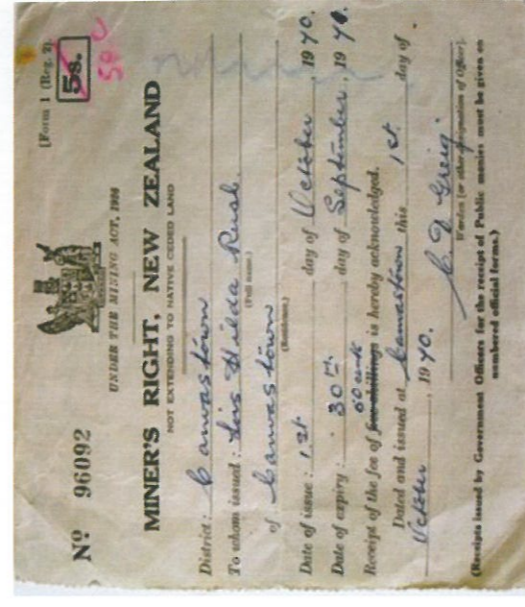 [Form 1 (Reg. 2).
5s.
50 c
Nº 96092
UNDER THE MINING ACT, 1926
MINER'S RIGHT, NEW ZEALAND
NOT EXTENDING TO NATIVE CEDED LAND
District: Canvastown
To whom issued: Iris Hilda Rush.
(Full name.)
of Canvastown
(Residence.)
Date of issue: 1st day of October, 1970.
Date of expiry: 30th day of September, 19
Receipt of the fee of five shillings 50 cents is hereby acknowledged.
Dated and issued at Canvastown this 1st day of
October, 1970.
C. D. Greig
Warden [or other designation of Officer].
(Receipts issued by Government Officers for the receipt of Public monies must be given on
numbered official forms.)